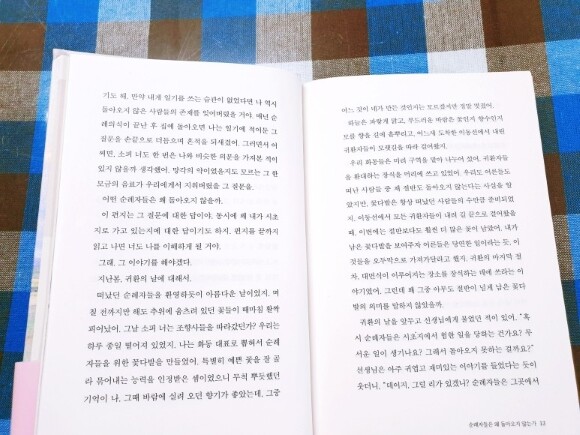 기도 해. 만약 내게 일기를 쓰는 습관이 없었다면 나 역시
돌아오지 않은 사람들의 존재를 잊어버렸을 거야. 매년 순
례의식이 끝난 후 집에 돌아오면 나는 일기에 적어둔 그
질문을 손끝으로 더듬으며 흔적을 되새겼어. 그러면서 어
쩌면, 소피 너도 한 번은 나와 비슷한 의문을 가져본 적이
있지 않을까 생각했어. 망각의 약이었을지도 모르는 그 한
모금의 음료가 우리에게서 지워버렸을 그 질문을.
어떤 순례자들은 왜 돌아오지 않을까.
이 편지는 그 질문에 대한 답이야. 동시에 왜 내가 시초지
로 가고 있는지에 대한 답이기도 하지. 편지를 끝까지
읽고 나면 너도 나를 이해하게 될 거야.
그래, 그 이야기를 해야겠다.
지난봄, 귀환의 날에 대해서.
떠났던 순례자들을 환영하듯이 아름다운 날이었지. 며
칠 전까지만 해도 추위에 움츠러 있던 꽃들이 때마침 활짝
피어났어. 그날 소피 너는 조향사들을 따라갔던가? 우리는
하루 종일 떨어져 있었지. 나는 화동 대표로 뽑혀서 순례
자들을 위한 꽃다발을 만들었어. 특별히 예쁜 꽃을 잘 골
라 묶어내는 능력을 인정받은 셈이었으니 무척 뿌듯했던
기억이 나. 그때 바람에 실려 오던 향기가 좋았는데, 그중
어느 것이 네가 만든 것인지는 모르겠지만 정말 멋졌어.
하늘은 파랗게 맑고, 부드러운 바람은 꽃인지 향수인지
모를 향을 길에 흩뿌리고, 어느새 도착한 이동선에서 내린
귀환자들이 오솔길을 따라 걸어왔지.
우리 화동들은 미리 구역을 맡아 나누어 섰어. 귀환자들
을 환대하는 장식을 머리에 쓰고 있었어. 우리도 어른들도
떠난 사람들 중 채 절반도 돌아오지 않는다는 사실을 알
았지만, 꽃다발은 항상 떠났던 사람들의 수만큼 준비되었
지. 이동선에서 모든 귀환자들이 내려 길 끝으로 걸어왔을
때, 이번에는 절반보다도 훨씬 더 많은 꽃이 남았어. 내가
남은 꽃다발을 보여주자 어른들은 당연한 일이라는 듯, 이
것들을 오두막으로 가져가달라고 했지. 귀환의 마지막 절
차, 대면식이 이루어지는 장소를 장식하는 데에 쓰라는 이
야기였어. 그런데 왜 그중 아무도 절반이 넘게 남은 꽃다
발의 의미를 말하지 않았을까.
귀환의 날을 앞두고 선생님에게 물었던 적이 있어. "혹
시 순례자들은 시초지에서 위험한 일을 당하는 건가요? 무
서운 일이 생기나요? 그래서 돌아오지 못하는 걸까요?"
선생님은 아주 귀엽고 재미있는 이야기를 들었다는 듯이
웃더니, "데이지, 그럴 리가 있겠니? 순례자들은 그곳에서
순례자들은 왜 돌아오지 않는가 13